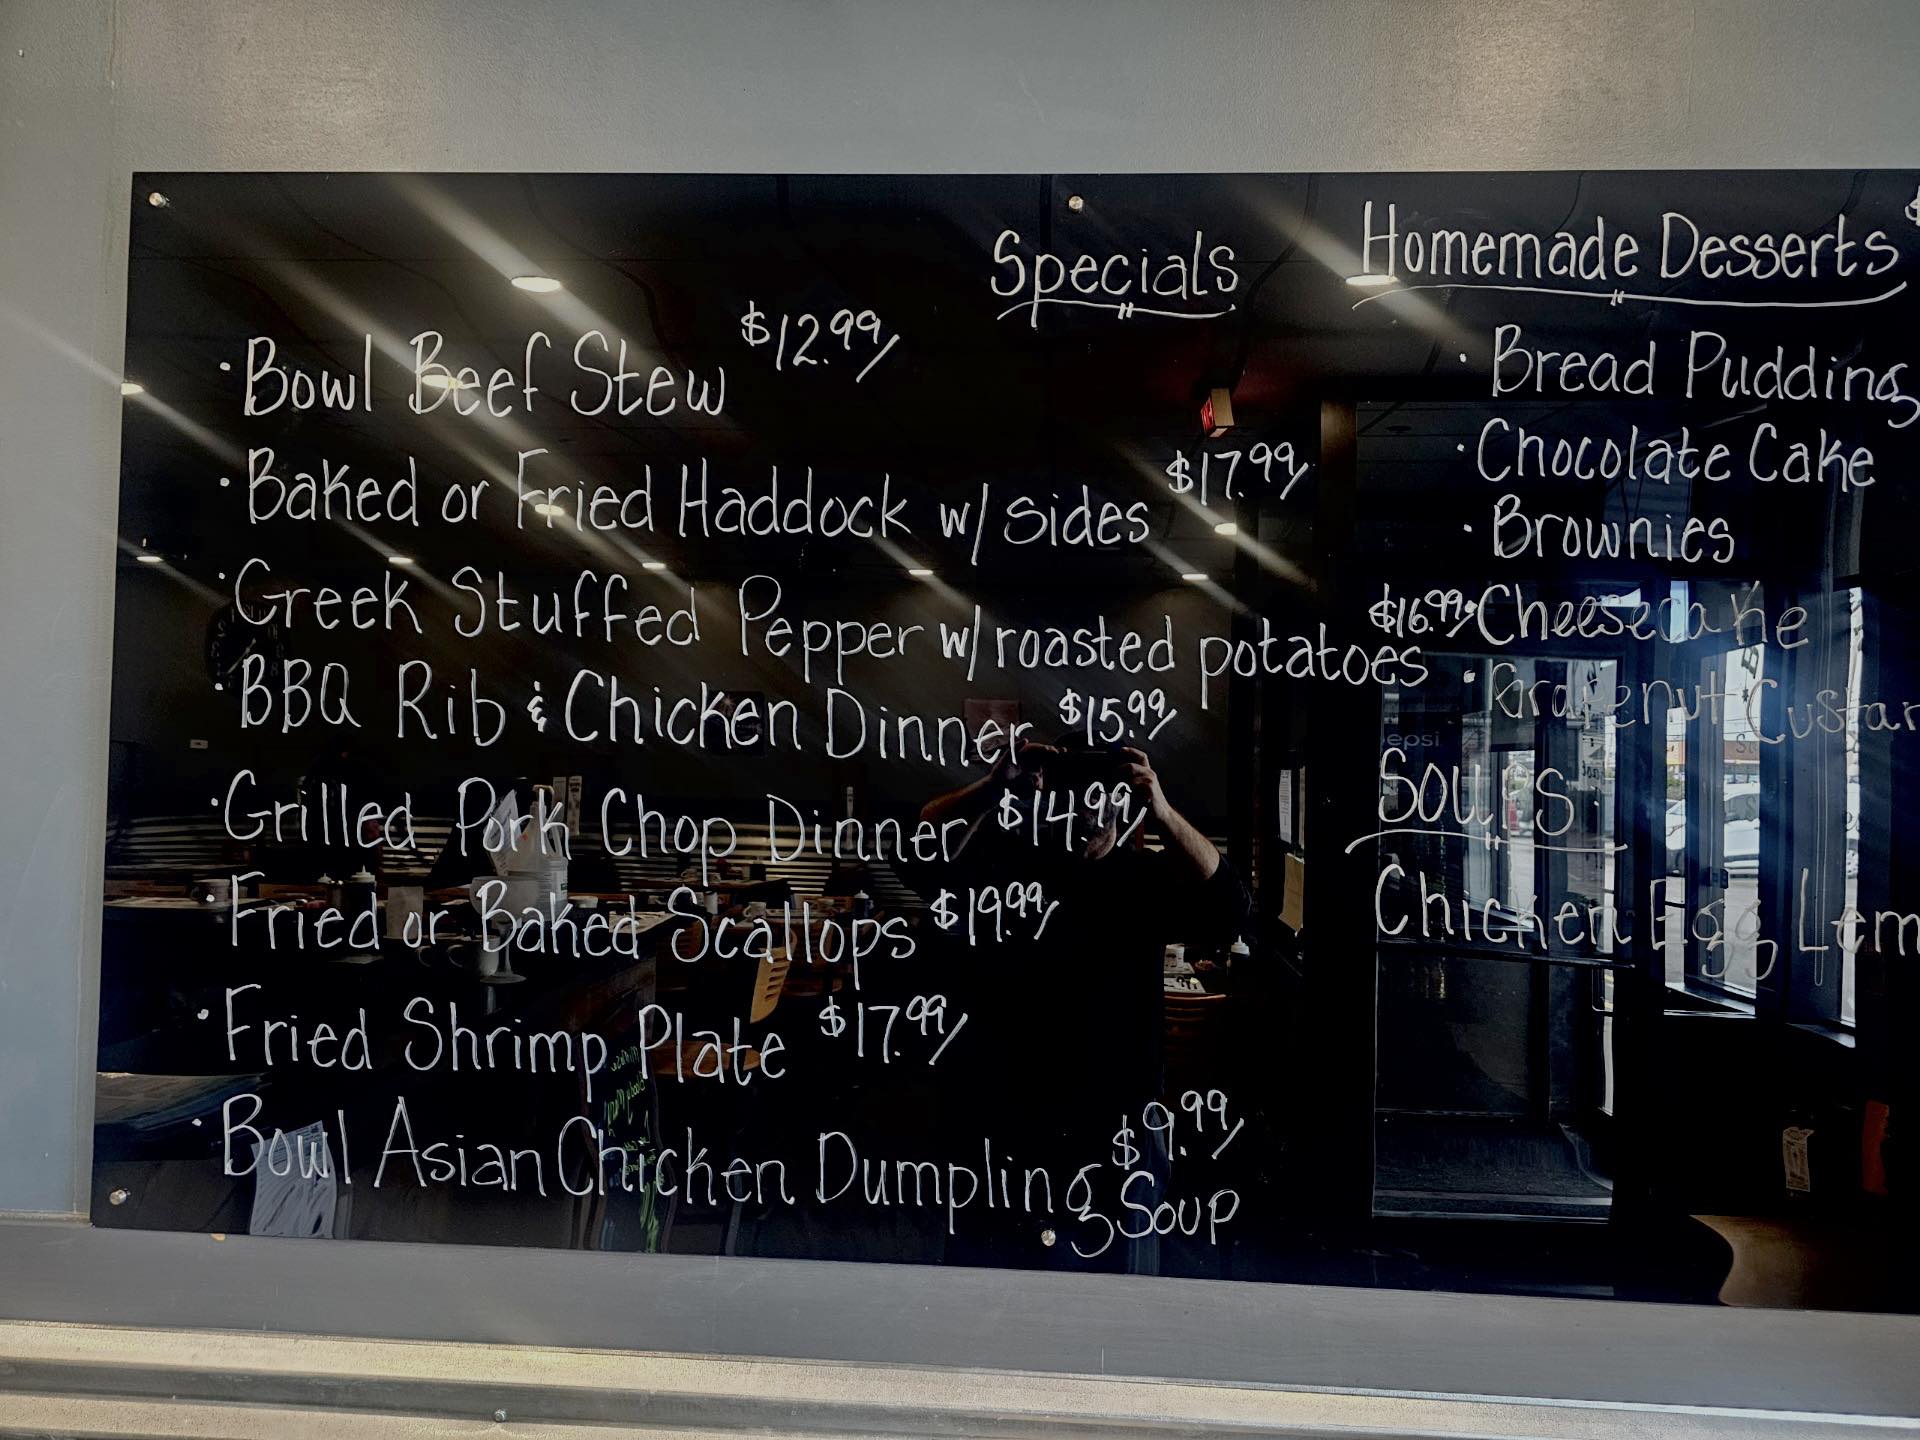 Specials
· Bowl Beef Stew $12.99/
· Baked or Fried Haddock w/ sides $17.99/
· Greek Stuffed Pepper w/ roasted potatoes $16.99/
· BBQ Rib & Chicken Dinner $15.99/
· Grilled Pork Chop Dinner $14.99/
· Fried or Baked Scallops $19.99/
· Fried Shrimp Plate $17.99/
· Bowl Asian Chicken Dumpling Soup $9.99/
Homemade Desserts $
· Bread Pudding
· Chocolate Cake
· Brownies
· Cheesecake
· Grapenut Custar
Soups:
Chicken Egg Lem